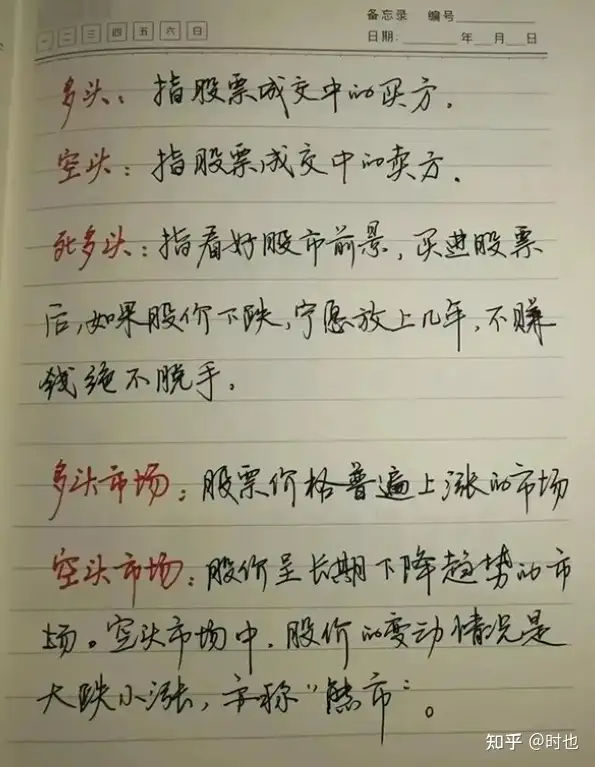 备忘录 编号
一 二 三 四 五 六 日
日期: 年 月 日
多头：指股票成交中的买方.
空头：指股票成交中的卖方.
死多头：指看好股市前景,买进股票
后,如果股价下跌,宁愿放上几年,不赚
钱绝不脱手.
多头市场：股票价格普遍上涨的市场
空头市场：股价呈长期下降趋势的市
场。空头市场中,股价的变动情况是
大跌小涨,亦称“熊市”。
知乎 @时也